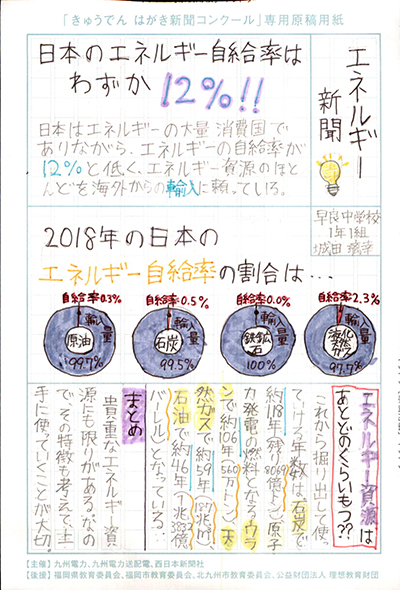 「きゅうでん はがき新聞コンクール」専用原稿用紙
エネルギー
新聞
早良中学校
1年1組
日本のエネルギー自給率は
わずか 12%!!
日本はエネルギーの大量消費国で
ありながら、エネルギーの自給率が
12%と低く、エネルギー資源のほと
んどを海外からの輸入に頼っている。
2018年の日本の
エネルギー自給率の割合は…
自給率0.3%
輸入量
原油
99.7%
自給率0.5%
輸入量
石炭
99.5%
自給率0.0%
輸入量
鉄鉱石
100%
自給率2.3%
輸入量
液化天然ガス
97.7%
エネルギー資源は
あとどのくらいもつ??
これから掘り出して使っ
ていける年数は、石炭で
約118年(残り8069億トン)、原子
力発電の燃料となるウラ
ンで約106年(560万トン)、天
然ガスで約59年(187兆㎥)、
石油で約46年(1兆3833億
バレル)となっている…
まとめ
貴重なエネルギー資
源にも限りがある。なの
で、その特徴も考えて、上
手に使っていくことが大切。
【主催】九州電力、九州電力送配電、西日本新聞社
【後援】福岡県教育委員会、福岡市教育委員会、北九州市教育委員会、公益財団法人 理想教育財団